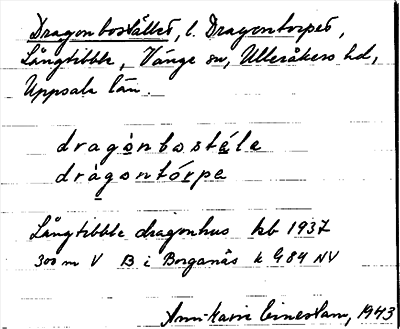 Dragonbostället, l. Dragontorpet,
Långtibble, Vänge sn, Ulleråkers hd,
Uppsala län.
dragónbostéle
drágontórpe
Långtibble dragonhus kb 1937
300 m V B i Borganäs k G 84 NV
Ann-Karin 1943